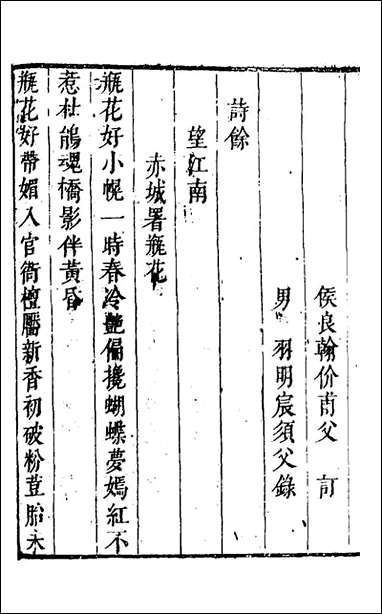 侯良翰价菴父　訂
男　羽明宸須父錄
詩餘
望江南
赤城署瓶花
瓶花好小幌一時春冷艷偏攙蝴蝶夢嫣紅不
惹杜鵑魂橋影伴黃昏
瓶花好帶媚入官衙檀麝新香初破粉荳胎未